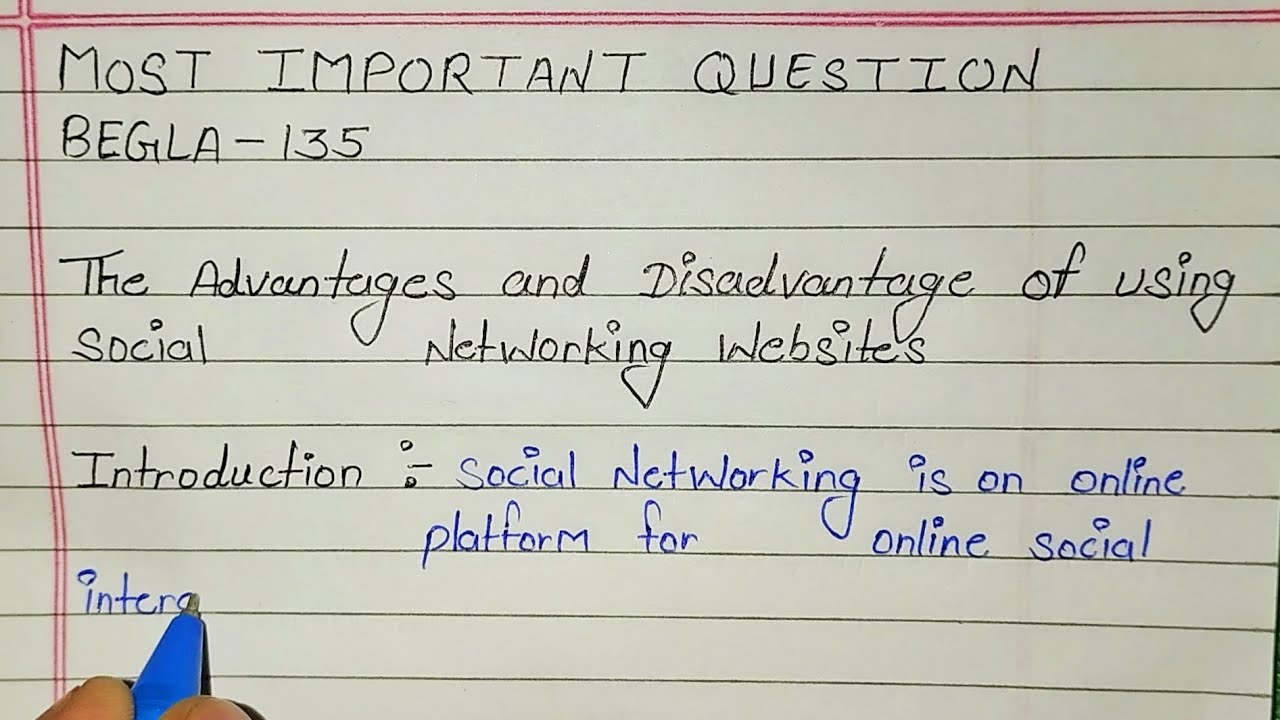 MOST IMPORTANT QUESTION
BEGLA-135
The Advantages and Disadvantage of using
Social Networking Websites
Introduction :- Social Networking is on online
platform for online social
intera